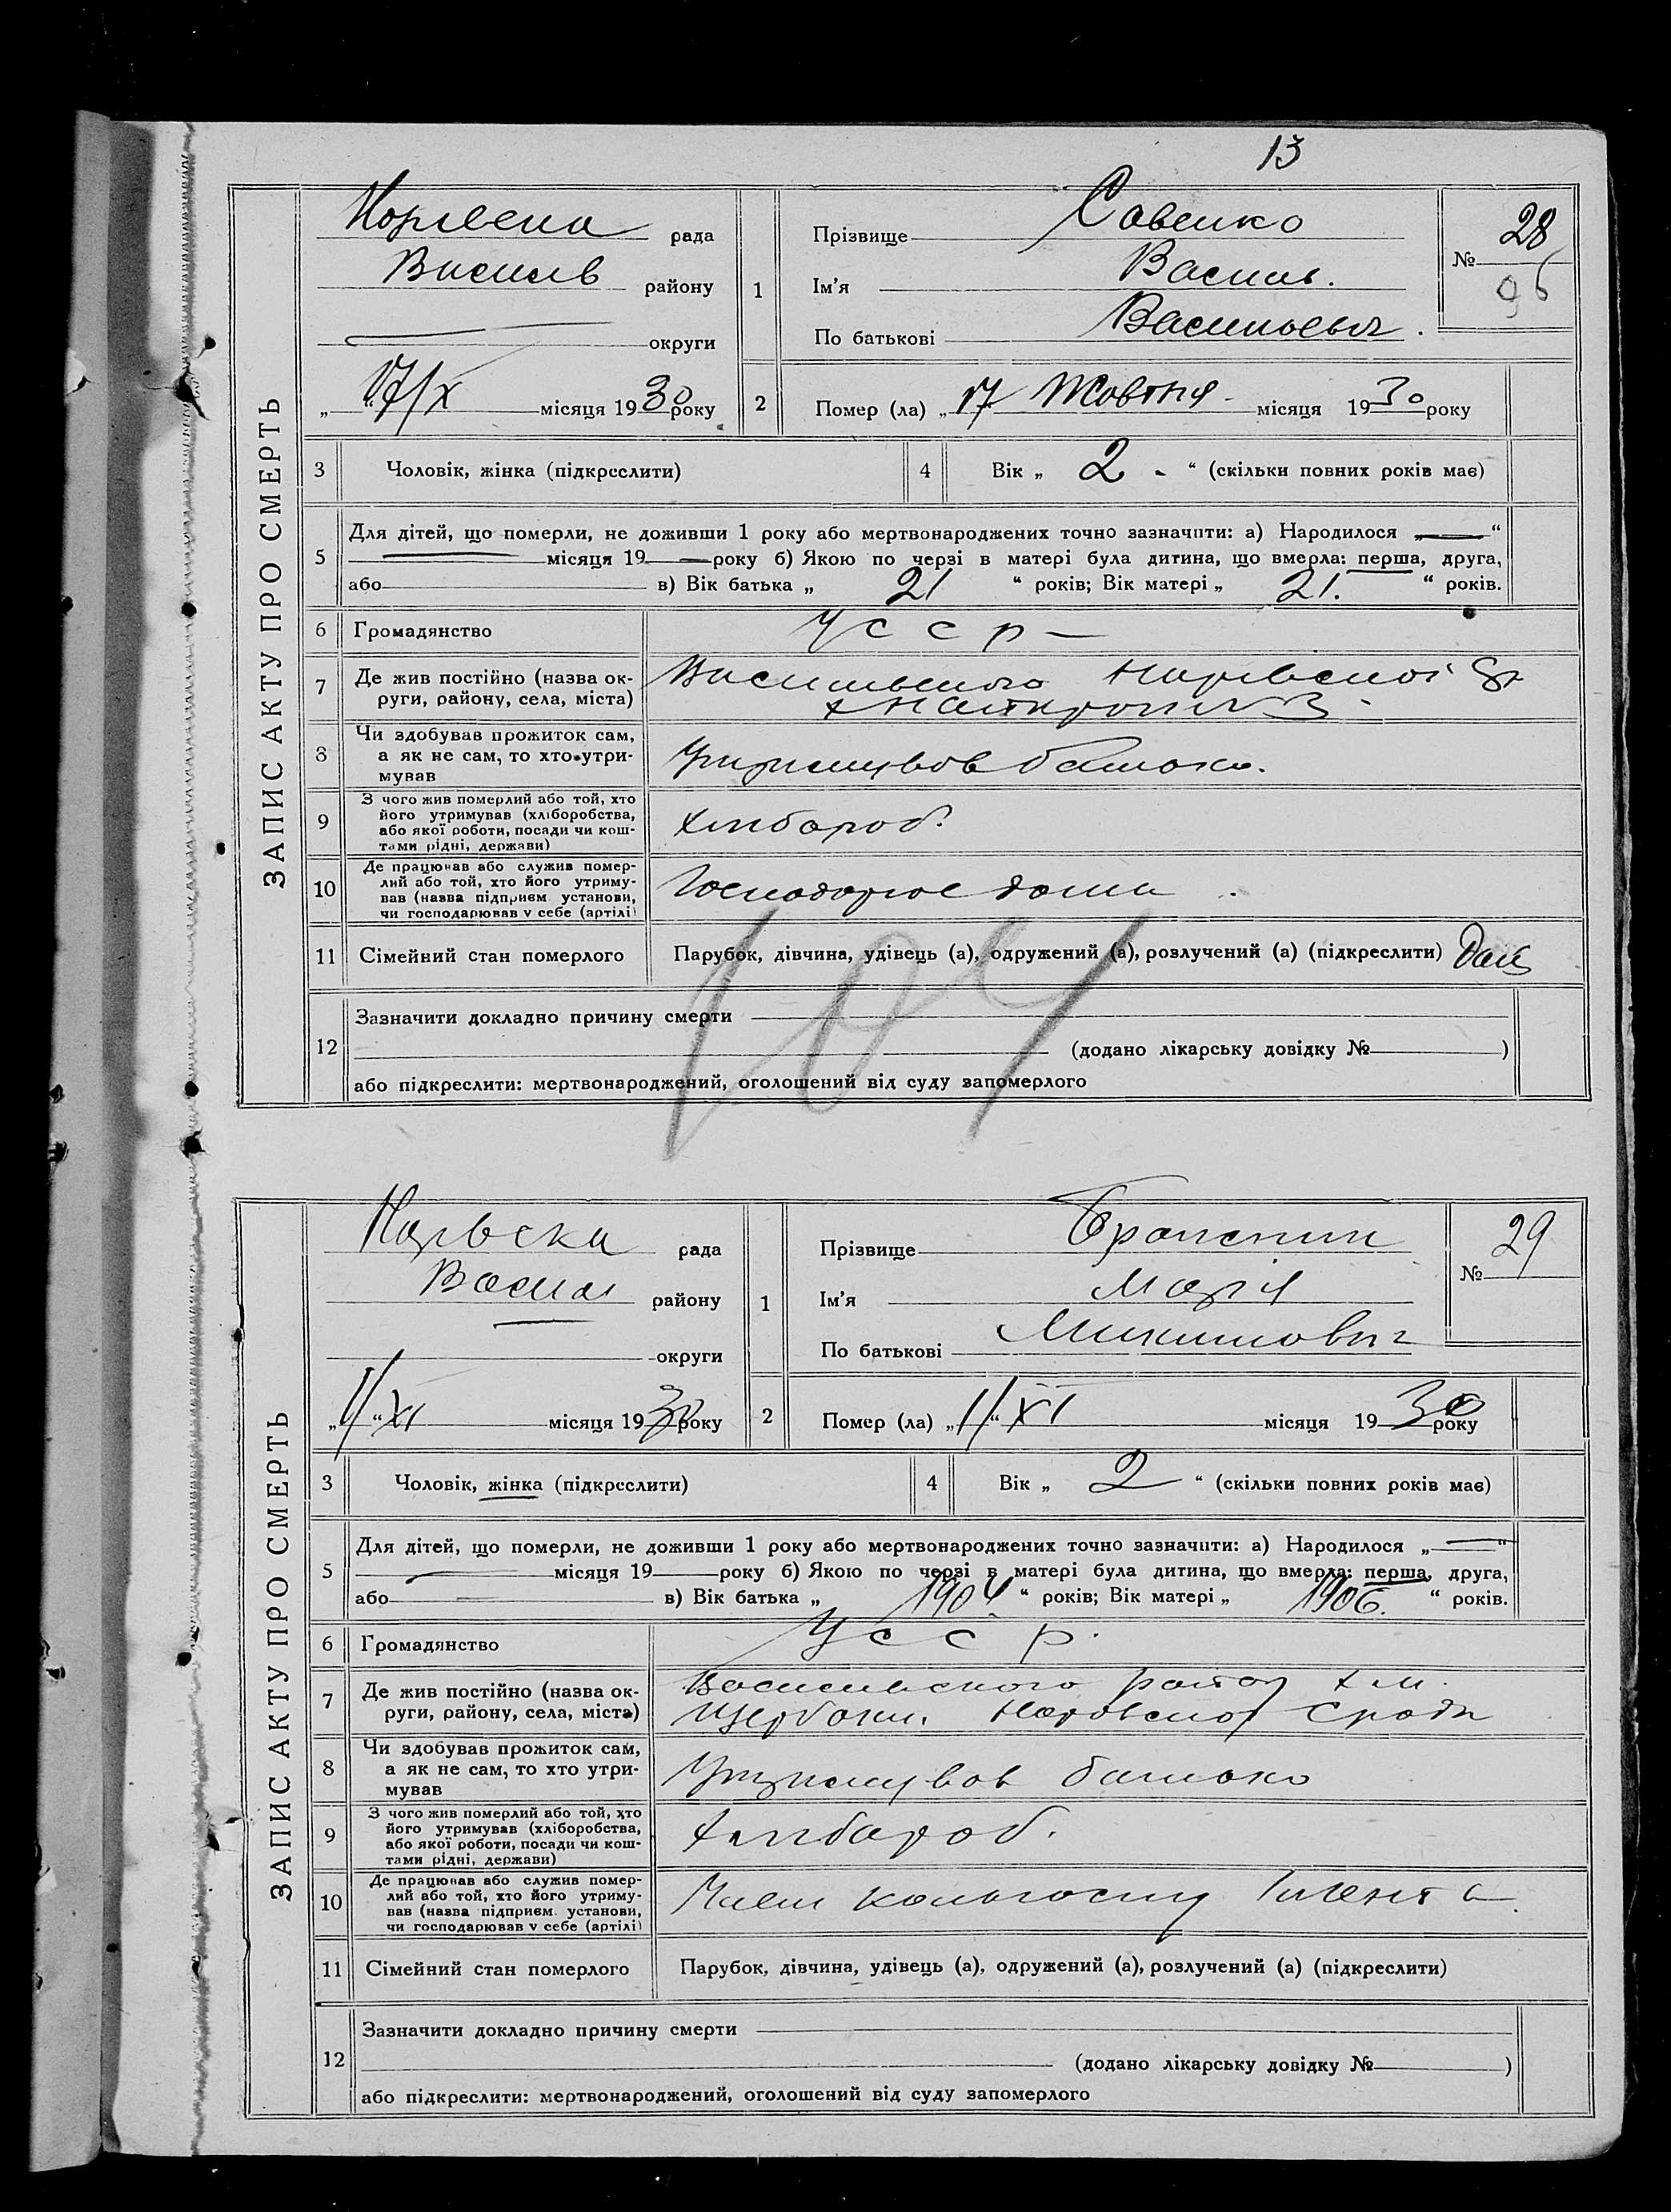 13
ЗАПИС АКТУ ПРО СМЕРТЬ
рада
району
округи
„17/X“ місяця 1930 року
1
Прізвище Савенко
Ім'я Василь.
По батькові Васильевич.
№ 28
96
2
Помер (ла) „17 Жовтня місяця 1930 року
3
Чоловік, жінка (підкреслити)
4
Вік „ 2 - “ (скільки повних років має)
5
Для дітей, що померли, не доживши 1 року або мертвонароджених точно зазначити: а) Народилося „—“
— місяця 19— року б) Якою по черзі в матері була дитина, що вмерла: перша, друга,
або в) Вік батька „ 21 “ років; Вік матері „ 21. “ років.
6
Громадянство
УССР —
7
Де жив постійно (назва ок-
руги, району, села, міста)
8
Чи здобував прожиток сам,
а як не сам, то хто утри-
мував
Утримував батько.
9
З чого жив померлий або той, хто
його утримував (хліборобства,
або якої роботи, посади чи кош-
тами рідні, держави)
хлібороб.
10
Де працював або служив помер-
лий або той, хто його утриму-
вав (назва підприєм. установи,
чи господарював у себе (артілі)
дома
11
Сімейний стан померлого
Парубок, дівчина, удівець (а), одружений (а), розлучений (а) (підкреслити)
104
12
Зазначити докладно причину смерти
(додано лікарську довідку № )
або підкреслити: мертвонароджений, оголошений від суду запомерлого
ЗАПИС АКТУ ПРО СМЕРТЬ
рада
Васил району
округи
„1/“XI місяця 1930 року
1
Прізвище
Ім'я Марія
По батькові
№ 29
2
Помер (ла) „1/“ XI місяця 1930 року
3
Чоловік, жінка (підкреслити)
4
Вік „ 2 “ (скільки повних років має)
5
Для дітей, що померли, не доживши 1 року або мертвонароджених точно зазначити: а) Народилося „—“
— місяця 19 року б) Якою по черзі в матері була дитина, що вмерла: перша, друга,
або — в) Вік батька „ 1904. “ років; Вік матері „ 1906. “ років.
6
Громадянство
УССР.
7
Де жив постійно (назва ок-
руги, району, села, міста)
Васильвського
8
Чи здобував прожиток сам,
а як не сам, то хто утри-
мував
Утримував батько
9
З чого жив померлий або той, хто
його утримував (хліборобства,
або якої роботи, посади чи кош-
тами рідні, держави)
хлібороб.
10
Де працював або служив помер-
лий або той, хто його утриму-
вав (назва підприєм. установи,
чи господарював у себе (артілі)
Член колгоспу
11
Сімейний стан померлого
Парубок, дівчина, удівець (а), одружений (а), розлучений (а) (підкреслити)
12
Зазначити докладно причину смерти
(додано лікарську довідку № )
або підкреслити: мертвонароджений, оголошений від суду запомерлого